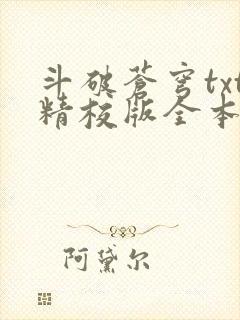 斗破苍穹txt
精校版全本
阿黛尔